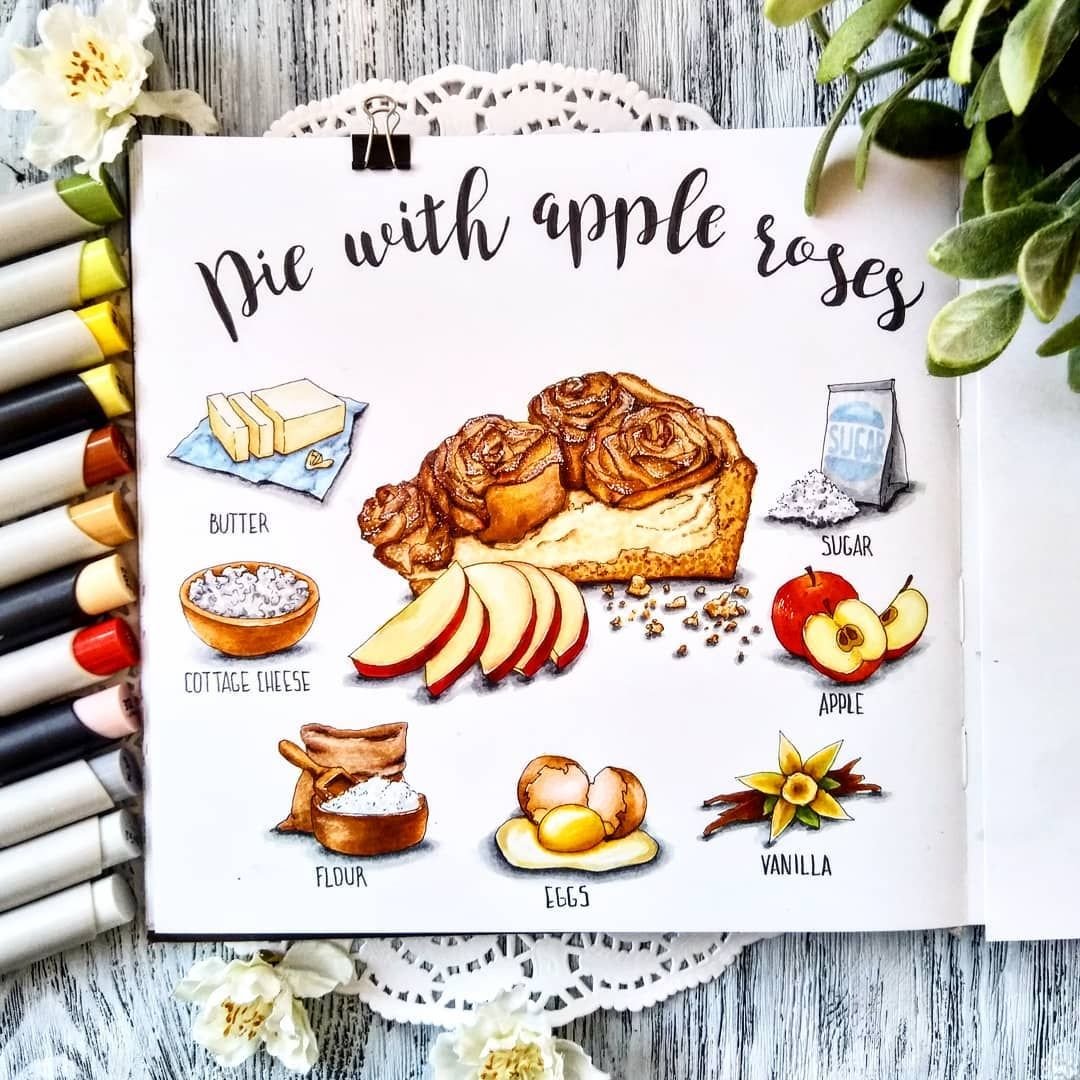 Pie with apple roses
BUTTER
SUGAR
SUGAR
COTTAGE CHEESE
APPLE
FLOUR
EGGS
VANILLA